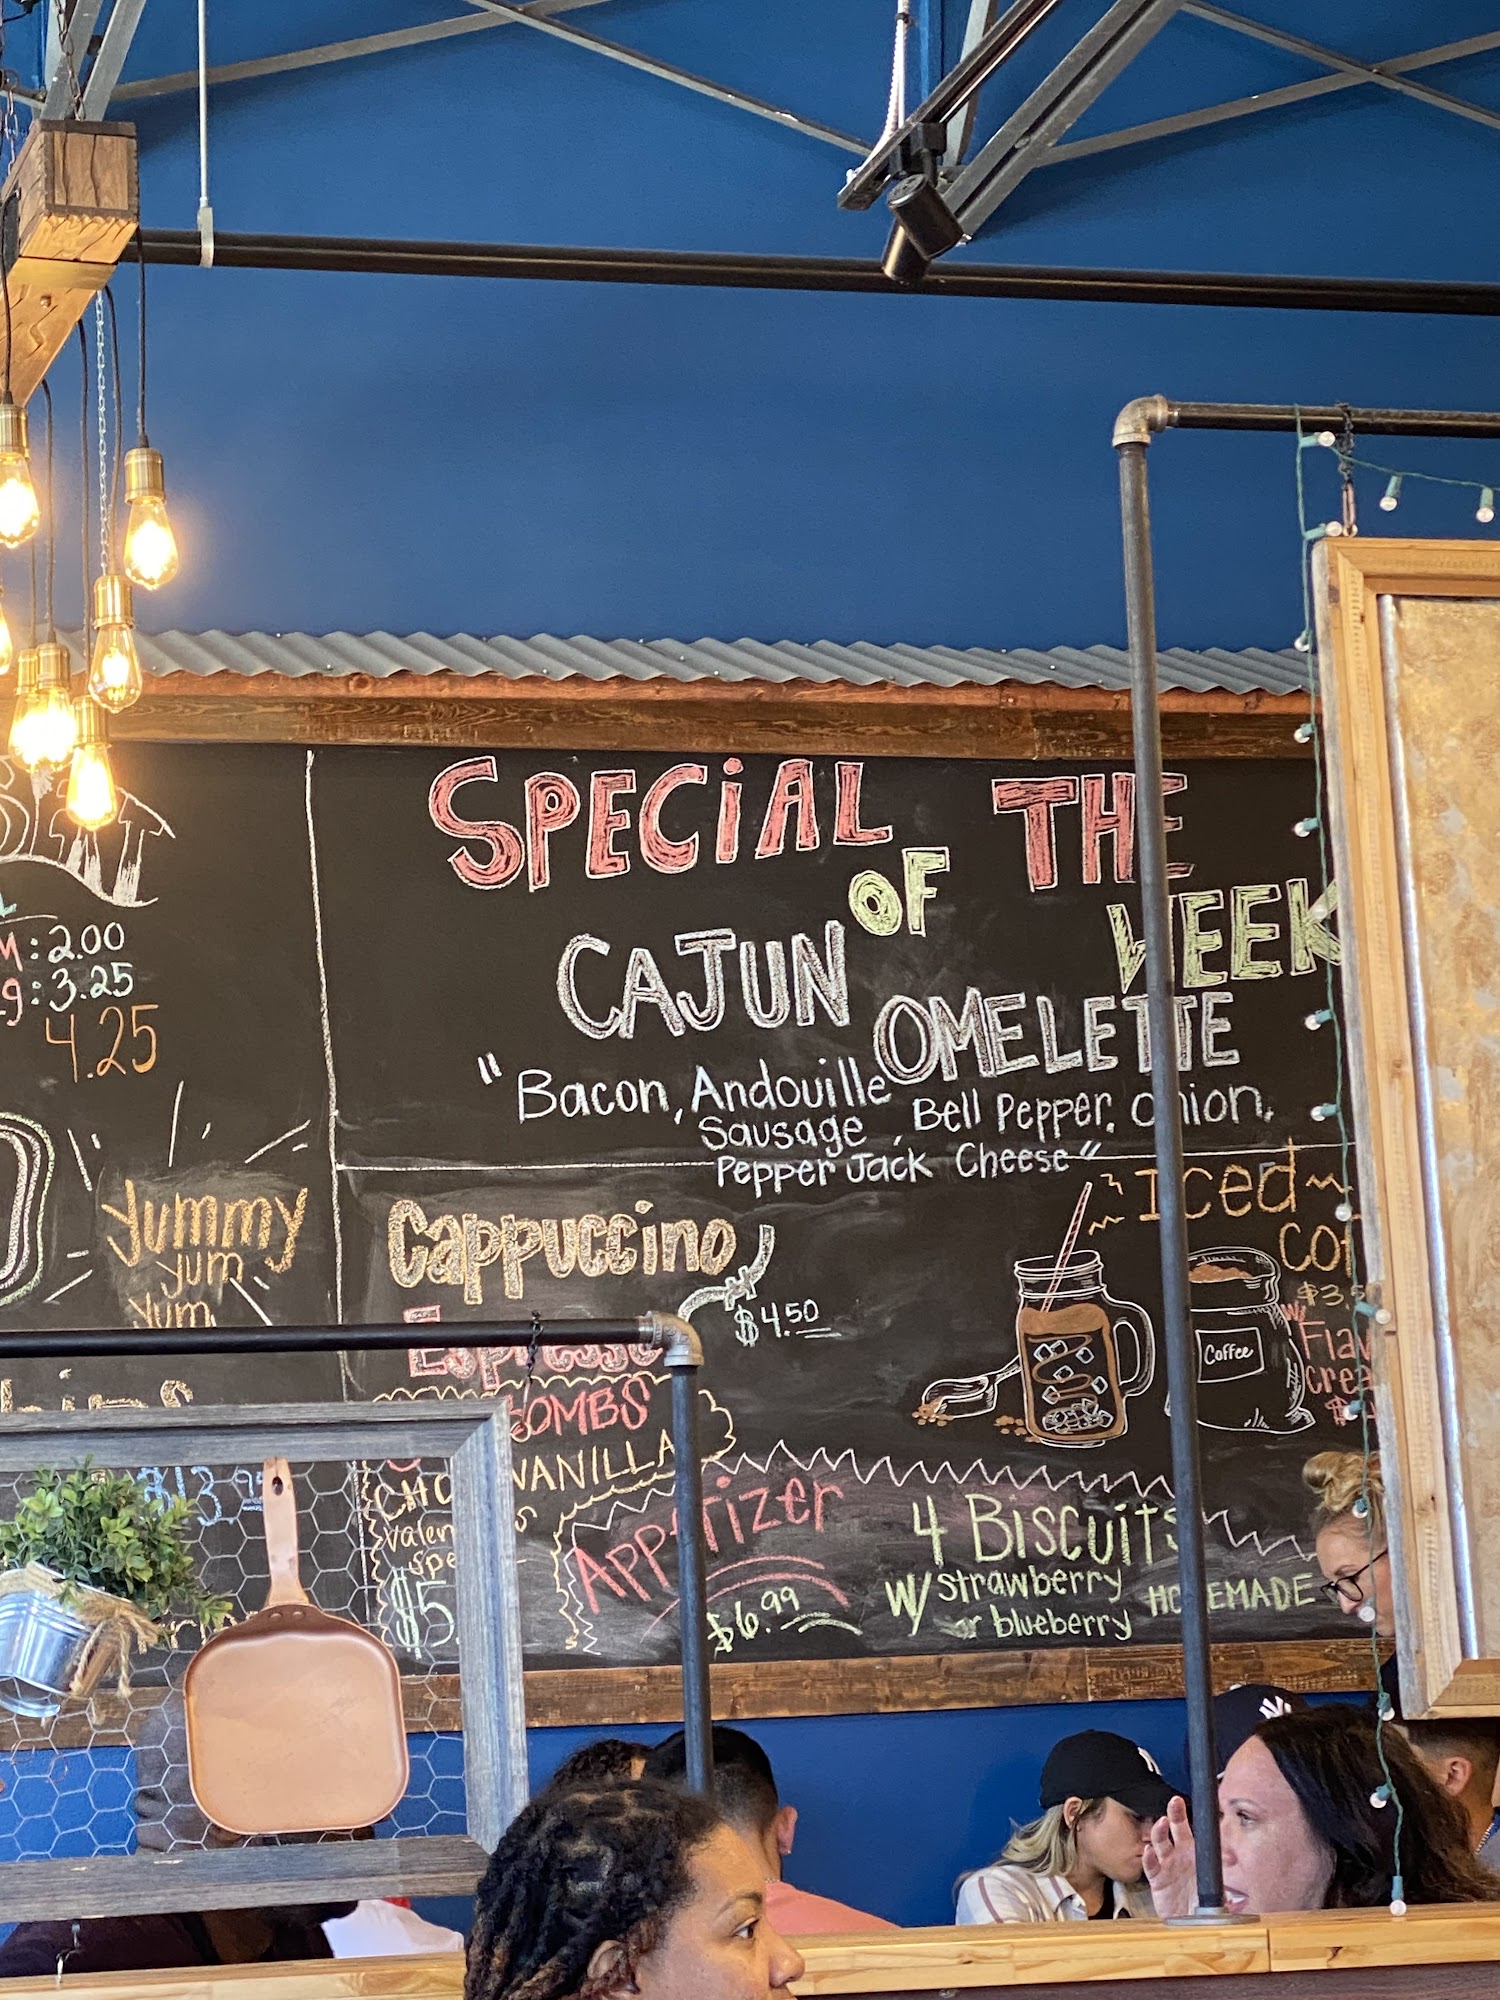 : 2.00
g: 3.25
4.25
Yummy
yum
yum
$13.
SPECIAL THE
OF WEEK
CAJUN
OMELETTE
" Bacon, Andouille
Sausage, Bell Pepper, Onion,
Pepper Jack Cheese"
Cappuccino
$4.50
Espresso
ICED
$3.
Coffee
VANILLA
$5.
Appetizer
$6.99
4 Biscuits
W/ strawberry HOMEMADE
or blueberry